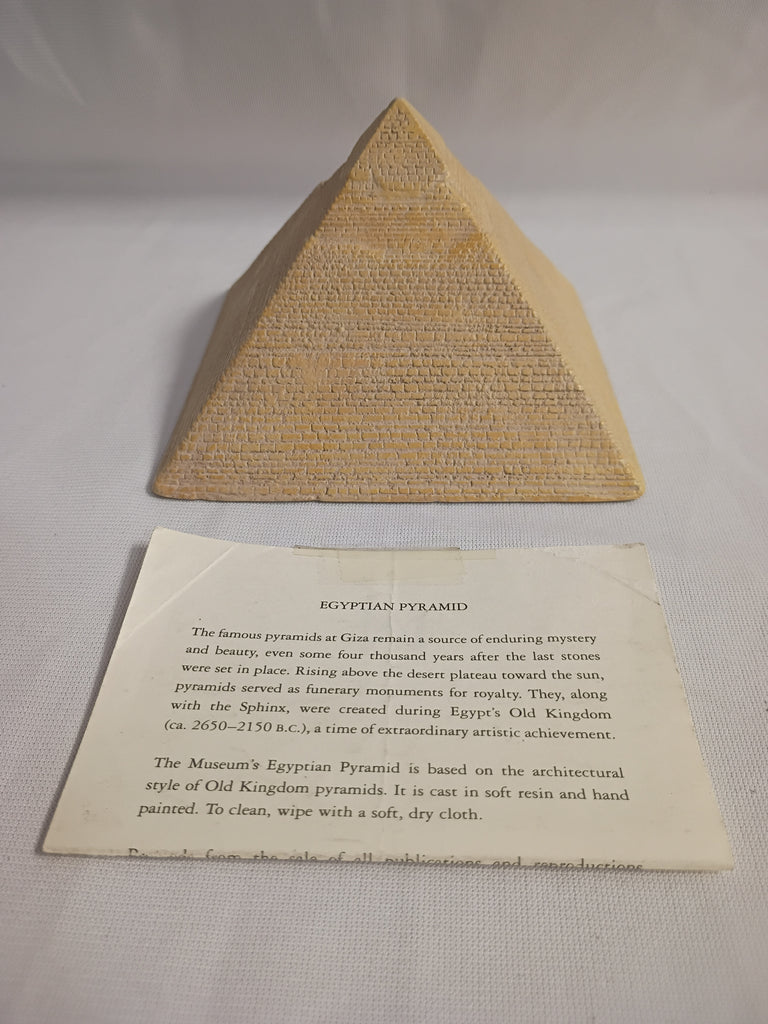 EGYPTIAN PYRAMID
The famous pyramids at Giza remain a source of enduring mystery
and beauty, even some four thousand years after the last stones
were set in place. Rising above the desert plateau toward the sun,
pyramids served as funerary monuments for royalty. They, along
with the Sphinx, were created during Egypt's Old Kingdom
(ca. 2650–2150 B.C.), a time of extraordinary artistic achievement.
The Museum's Egyptian Pyramid is based on the architectural
style of Old Kingdom pyramids. It is cast in soft resin and hand
painted. To clean, wipe with a soft, dry cloth.
from the sale of all publications and reproductions